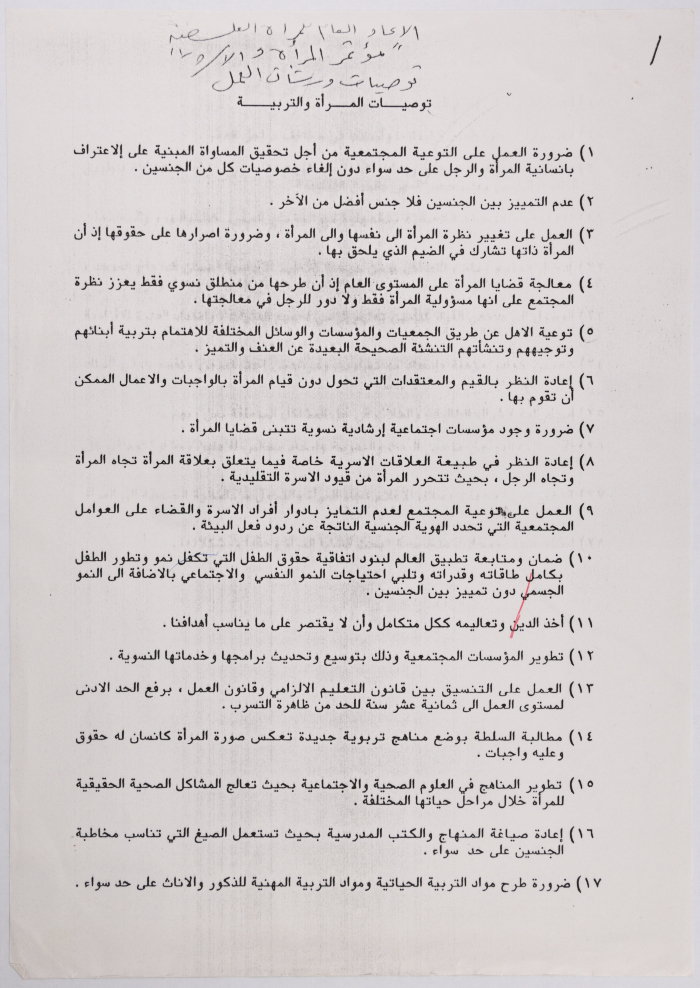 الاتحاد العام للمرأة الفلسطينية
"مؤتمر المرأة و
توصيات ورشات العمل
توصيـــات المـــرأة والتربيـــة
١) ضرورة العمل على التوعية المجتمعية من أجل تحقيق المساواة المبنية على إلاعتراف
بانسانية المرأة والرجل على حد سواء دون إلغاء خصوصيات كل من الجنسين .
٢) عدم التمييز بين الجنسين فلا جنس أفضل من الأخر .
٣) العمل على تغيير نظرة المرأة الى نفسها والى المرأة ، وضرورة اصرارها على حقوقها إذ أن
المرأة ذاتها تشارك في الضيم الذي يلحق بها .
٤) معالجة قضايا المرأة على المستوى العام إذ أن طرحها من منطلق نسوي فقط يعزز نظرة
المجتمع على انها مسؤولية المرأة فقط ولا دور للرجل في معالجتها .
٥) توعية الاهل عن طريق الجمعيات والمؤسسات والوسائل المختلفة للاهتمام بتربية أبنائهم
وتوجيههم وتنشأتهم التنشئة الصحيحة البعيدة عن العنف والتميز .
٦) إعادة النظر بالقيم والمعتقدات التي تحول دون قيام المرأة بالواجبات والاعمال الممكن
أن تقوم بها .
٧) ضرورة وجود مؤسسات اجتماعية إرشادية نسوية تتبنى قضايا المرأة .
٨) إعادة النظر في طبيعة العلاقات الاسرية خاصة فيما يتعلق بعلاقة المرأة تجاه المرأة
وتجاه الرجل ، بحيث تتحرر المرأة من قيود الاسرة التقليدية .
٩) العمل على توعية المجتمع لعدم التمايز بادوار أفراد الاسرة والقضاء على العوامل
المجتمعية التي تحدد الهوية الجنسية الناتجة عن ردود فعل البيئة .
١٠) ضمان ومتابعة تطبيق العالم لبنود اتفاقية حقوق الطفل التي تكفل نمو وتطور الطفل
بكامل طاقاته وقدراته وتلبي احتياجات النمو النفسي والاجتماعي بالاضافة الى النمو
الجسمي دون تمييز بين الجنسين .
١١) أخذ الدين وتعاليمه ككل متكامل وأن لا يقتصر على ما يناسب أهدافنا .
١٢) تطوير المؤسسات المجتمعية وذلك بتوسيع وتحديث برامجها وخدماتها النسوية .
١٣) العمل على التنسيق بين قانون التعليم الالزامي وقانون العمل ، برفع الحد الادنى
لمستوى العمل الى ثمانية عشر سنة للحد من ظاهرة التسرب .
١٤) مطالبة السلطة بوضع مناهج تربوية جديدة تعكس صورة المرأة كانسان له حقوق
وعليه واجبات .
١٥) تطوير المناهج في العلوم الصحية والاجتماعية بحيث تعالج المشاكل الصحية الحقيقية
للمرأة خلال مراحل حياتها المختلفة .
١٦) إعادة صياغة المنهاج والكتب المدرسية بحيث تستعمل الصيغ التي تناسب مخاطبة
الجنسين على حد سواء .
١٧) ضرورة طرح مواد التربية الحياتية ومواد التربية المهنية للذكور والاناث على حد سواء .